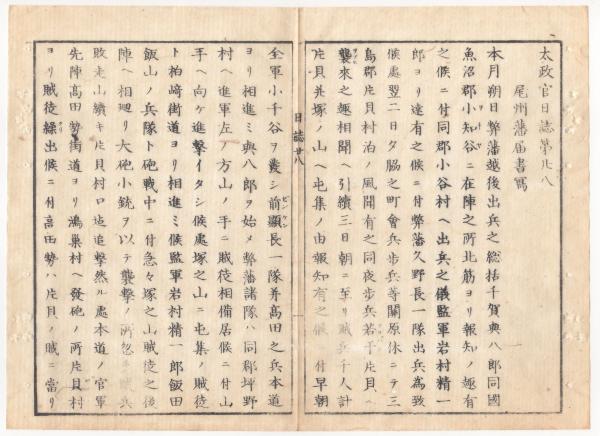 太政官日誌第廿八
尾州藩届書寫
本月朔日弊藩越後出兵之総括千賀與八郎同國
魚沼郡小知谷ニ在陣之所北筋ヨリ報知ノ趣有
之候ニ付同郡小谷村ヘ出兵之儀監軍岩村精一
郎ヨリ達有之候ニ付弊藩久野長一隊出兵為致
候處翌二日夕脇之町會兵歩兵等關原休ニテ三
島郡片貝村泊ノ風聞有之同夜歩兵若干片貝ヘ
襲來之趣相聞ヘ引續三日朝ニ至リ賊兵千人計
片貝并塚ノ山ヘ屯集ノ由報知有之候 付早朝
日誌廿八
全軍小千谷ヲ發シ前顯長一隊并高田之兵本道
ヨリ相進ミ與八郎ヲ始メ弊藩諸隊ハ同郡坪野
村ヘ進軍左ノ方山ノ手ニ賊徒相備居候ニ付山
手ヘ向ケ進撃イタシ候處塚之山ニ屯集ノ賊徒
ト柏﨑街道ヨリ相進ミ候監軍岩村精一郎飯田
飯山ノ兵隊ト砲戰中ニ付急々塚之山賊徒之後
陣ヘ相廻リ大砲小銃ヲ以テ襲撃ノ所忽チ賊兵
敗走山續キ片貝村口迠追撃然ル處本道ノ官軍
先陣高田勢街道ヨリ鴻巣村ヘ發砲ノ所片貝村
ヨリ賊徒繰出候ニ付高田勢ハ片貝ノ賊ニ當リ